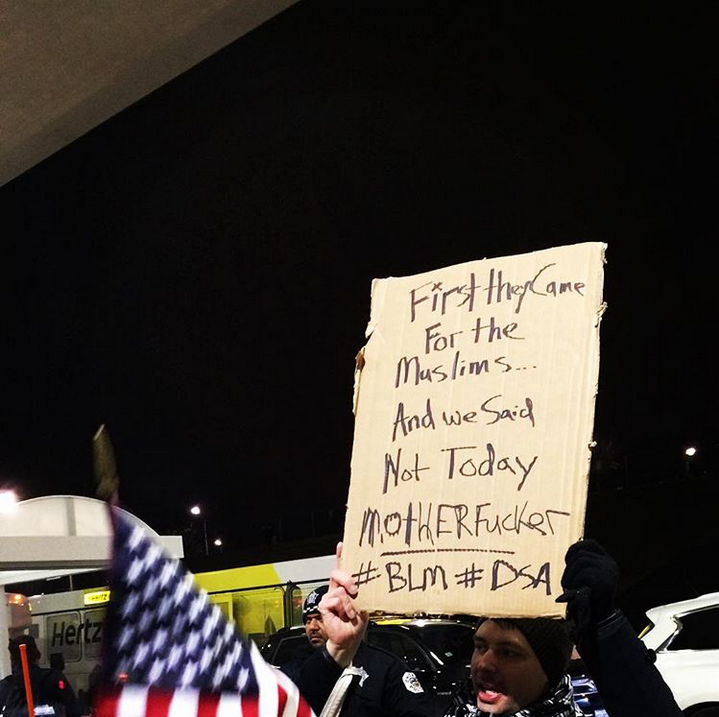 First they Came
For the
Muslims...
And we Said
Not Today
MothERFucker
#BLM #DSA
Hertz